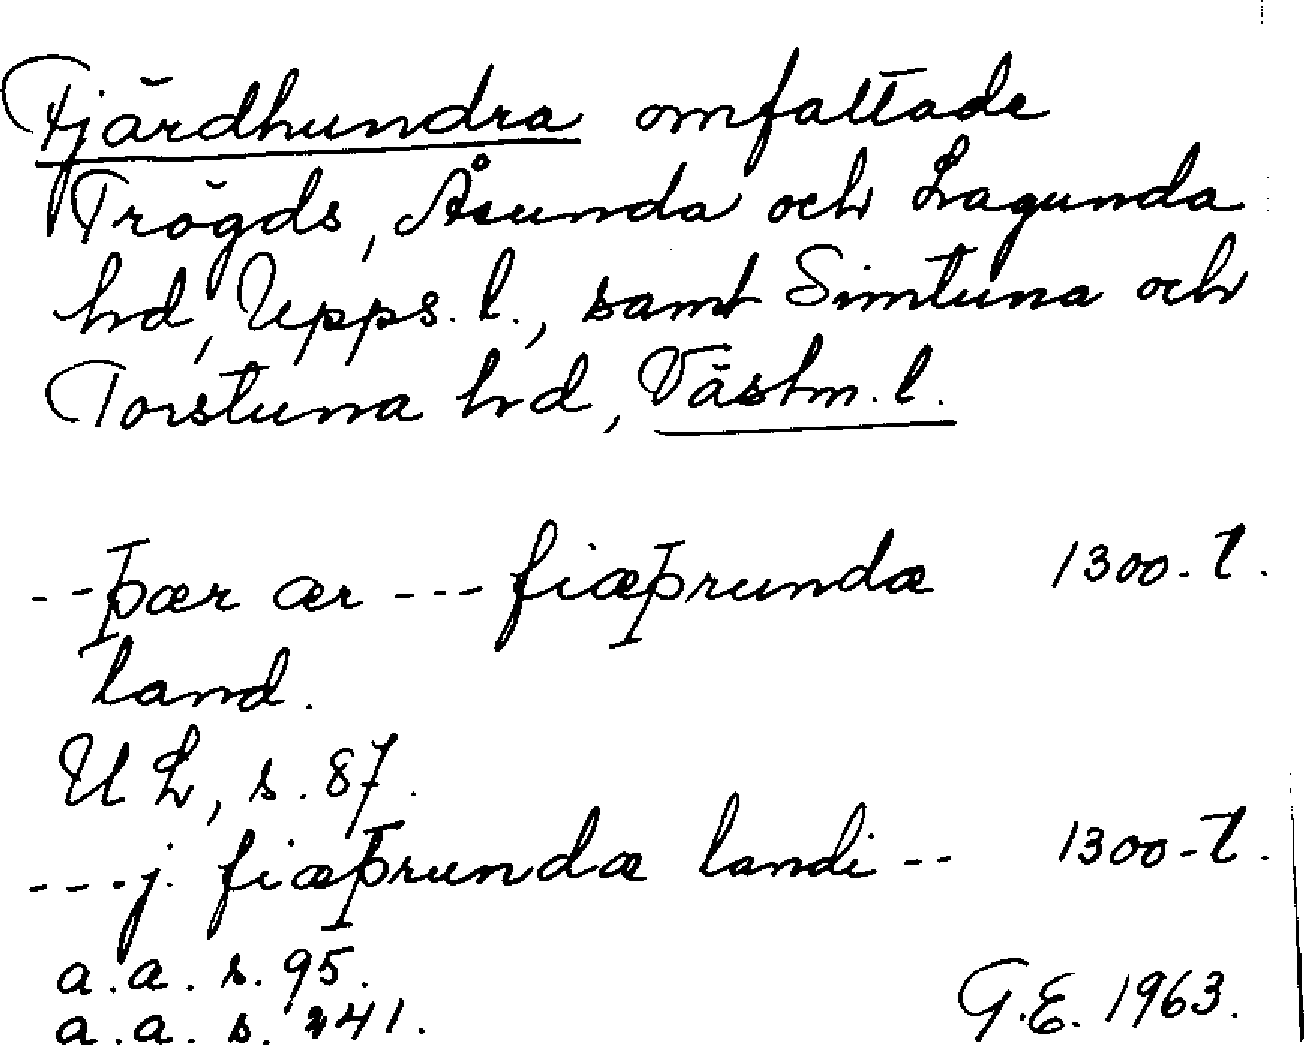 Fjärdhundra omfattade
Trögds, Åsunda och Lagunda
hd, Upps. l., samt Simtuna och
Torstuna hd, Västm. l.
--þær ær --- fiæþrundæ 1300-t.
land.
UL, s. 87.
---j. fiæþrundæ landi -- 1300-t.
a.a. s. 95.
a.a. s. 241. G.E. 1963.